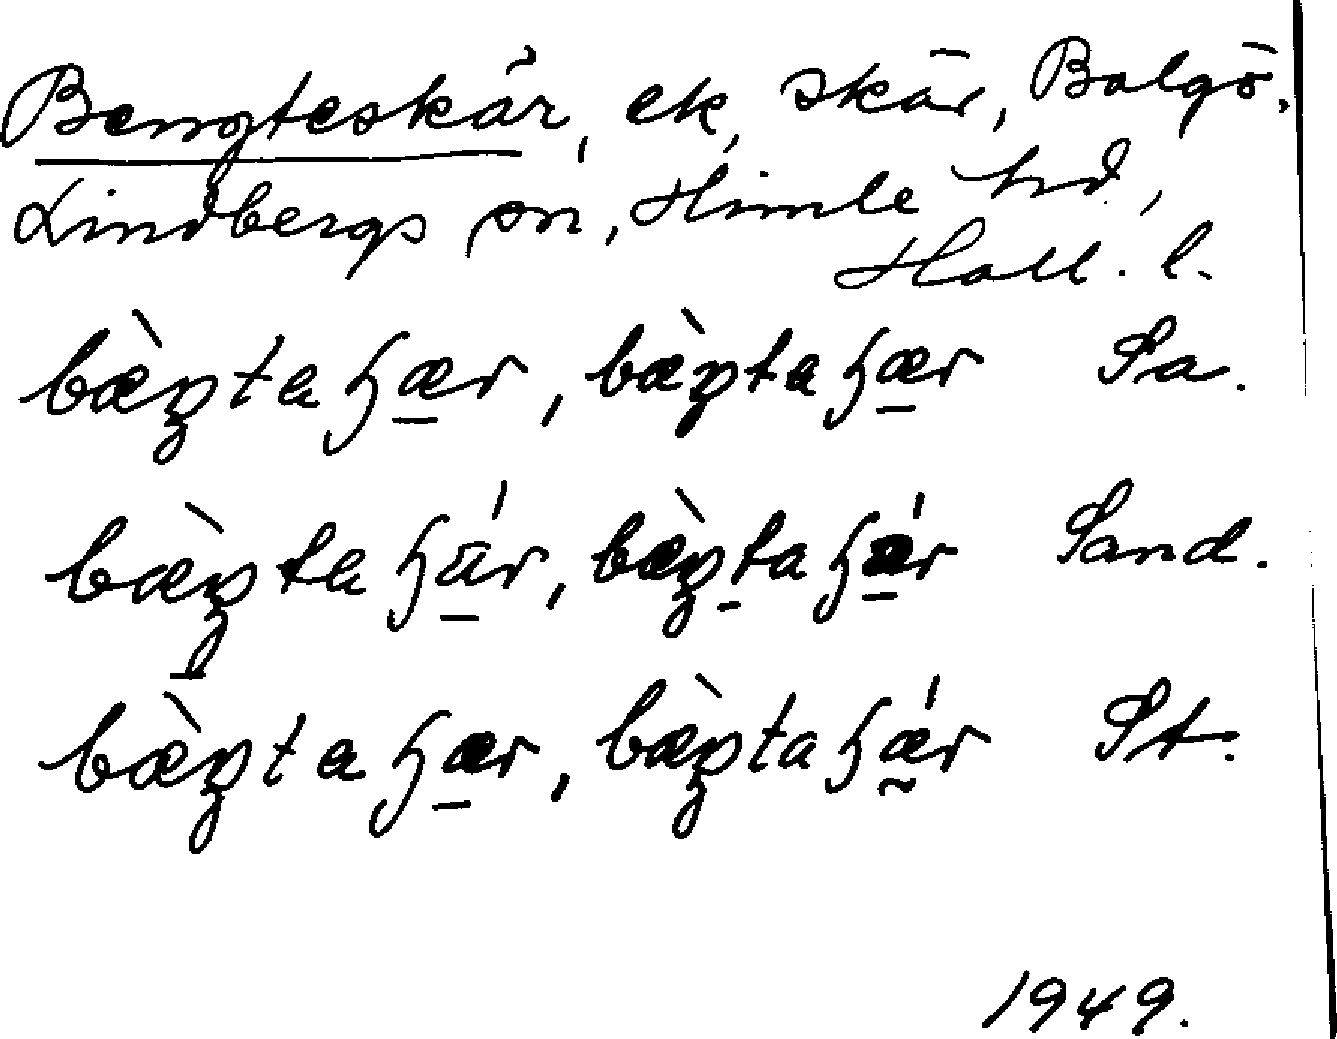 Bengteskär, ek, skär, Balgö.
Lindbergs sn, Himle hd,
Hall. l.
bæ̀ŋtaɧæ̱r, bæ̀ŋtaɧæ̱r Sa.
bæ̀ŋtaɧä̱́r, bæ̀ŋtaɧǽ̱r Sand.
bæ̀ŋtaɧæ̱r, bæ̀ŋtaɧǽ̰r St.
1949.